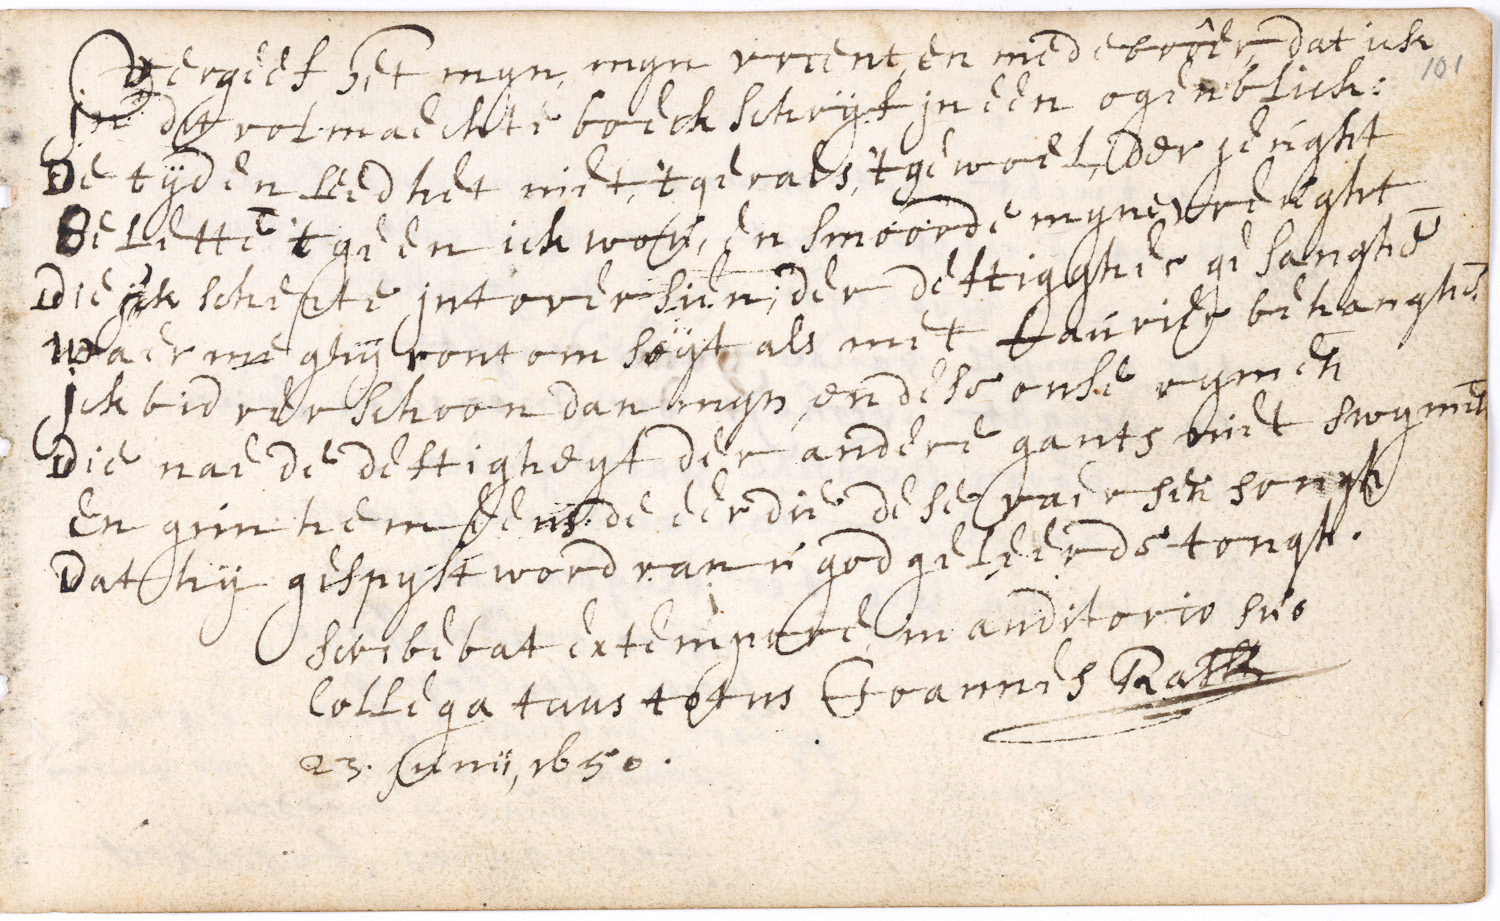 Vergeef het myn, myn vrient, en medebroêr, dat ick
101
jn dit volmaeckte boeck schryf jn een ogenblick:
De tyden leed het niet, 't geraes, 't gewoel, der jeught
Belette 't geen ick wou, en smoorde myne vreught
Die jck schepte jnt oversien, der deftiggher gesanghē
Waer me ghÿ rontom sÿt als met Laurier behanghē.
Jck bid verschoon dan myn, en dese onse rymen
Die nae de deftigheyt der andere gants niet swymen
En gun hem eens de eer die dese vaersen songh
Dat hÿ gespyst word van ú god geleerde tongh.
scribebat extempore, in auditorio suo
Collega tuus totus Joannes
23. Junii, 1650.